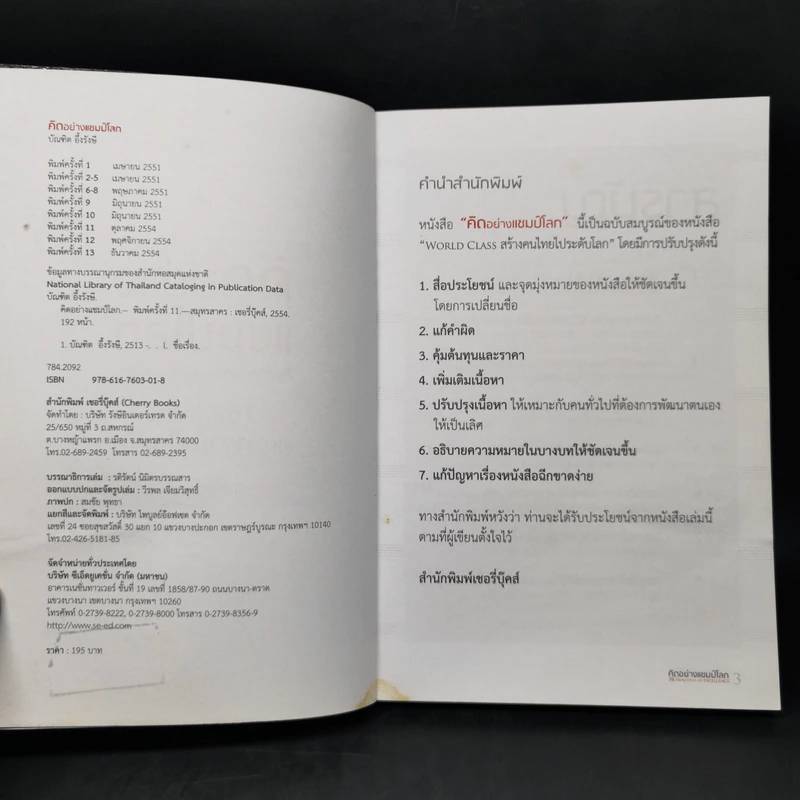 คิดอย่างแชมป์โลก
บัณฑิต อึ้งรังษี
พิมพ์ครั้งที่ 1 เมษายน 2551
พิมพ์ครั้งที่ 2-5 เมษายน 2551
พิมพ์ครั้งที่ 6-8 พฤษภาคม 2551
พิมพ์ครั้งที่ 9 มิถุนายน 2551
พิมพ์ครั้งที่ 10 มิถุนายน 2551
พิมพ์ครั้งที่ 11 ตุลาคม 2554
พิมพ์ครั้งที่ 12 พฤศจิกายน 2554
พิมพ์ครั้งที่ 13 ธันวาคม 2554
ข้อมูลทางบรรณานุกรมของสำนักหอสมุดแห่งชาติ
National Library of Thailand Cataloging in Publication Data
บัณฑิต อึ้งรังษี.
คิดอย่างแชมป์โลก.-- พิมพ์ครั้งที่ 11.--สมุทรสาคร : เชอรี่บุ๊คส์, 2554.
192 หน้า.
1. บัณฑิต อึ้งรังษี, 2513 -. . I. ชื่อเรื่อง.
784.2092
ISBN 978-616-7603-01-8
สำนักพิมพ์ เชอรี่บุ๊คส์ (Cherry Books)
จัดทำโดย : บริษัท รังษีอินเตอร์เทรด จำกัด
25/650 หมู่ที่ 3 ถ.สหกรณ์
ต.บางหญ้าแพรก อ.เมือง จ.สมุทรสาคร 74000
โทร.02-689-2459 โทรสาร 02-689-2395
บรรณาธิการเล่ม : รติรัตน์ นิมิตรบรรณสาร
ออกแบบปกและจัดรูปเล่ม : วีรพล เจียมวิสุทธิ์
ภาพปก : สมชัย พุทธา
แยกสีและจัดพิมพ์ : บริษัท ไพบูลย์อ๊อฟเซต จำกัด
เลขที่ 24 ซอยสุขสวัสดิ์ 30 แยก 10 แขวงบางปะกอก เขตราษฎร์บูรณะ กรุงเทพฯ 10140
โทร.02-426-5181-85
จัดจำหน่ายทั่วประเทศโดย
บริษัท ซีเอ็ดยูเคชั่น จำกัด (มหาชน)
อาคารเนชั่นทาวเวอร์ ชั้นที่ 19 เลขที่ 1858/87-90 ถนนบางนา-ตราด
แขวงบางนา เขตบางนา กรุงเทพฯ 10260
โทรศัพท์ 0-2739-8222, 0-2739-8000 โทรสาร 0-2739-8356-9
http://www.se-ed.com
ราคา : 195 บาท
คำนำสำนักพิมพ์
หนังสือ “คิดอย่างแชมป์โลก” นี้เป็นฉบับสมบูรณ์ของหนังสือ
“WORLD CLASS สร้างคนไทยไประดับโลก” โดยมีการปรับปรุงดังนี้
1. สื่อประโยชน์ และจุดมุ่งหมายของหนังสือให้ชัดเจนขึ้น
โดยการเปลี่ยนชื่อ
2. แก้คำผิด
3. คุ้มต้นทุนและราคา
4. เพิ่มเติมเนื้อหา
5. ปรับปรุงเนื้อหา ให้เหมาะกับคนทั่วไปที่ต้องการพัฒนาตนเอง
ให้เป็นเลิศ
6. อธิบายความหมายในบางบทให้ชัดเจนขึ้น
7. แก้ปัญหาเรื่องหนังสือฉีกขาดง่าย
ทางสำนักพิมพ์หวังว่า ท่านจะได้รับประโยชน์จากหนังสือเล่มนี้
ตามที่ผู้เขียนตั้งใจไว้
สำนักพิมพ์เชอรี่บุ๊คส์
คิดอย่างแชมป์โลก 3